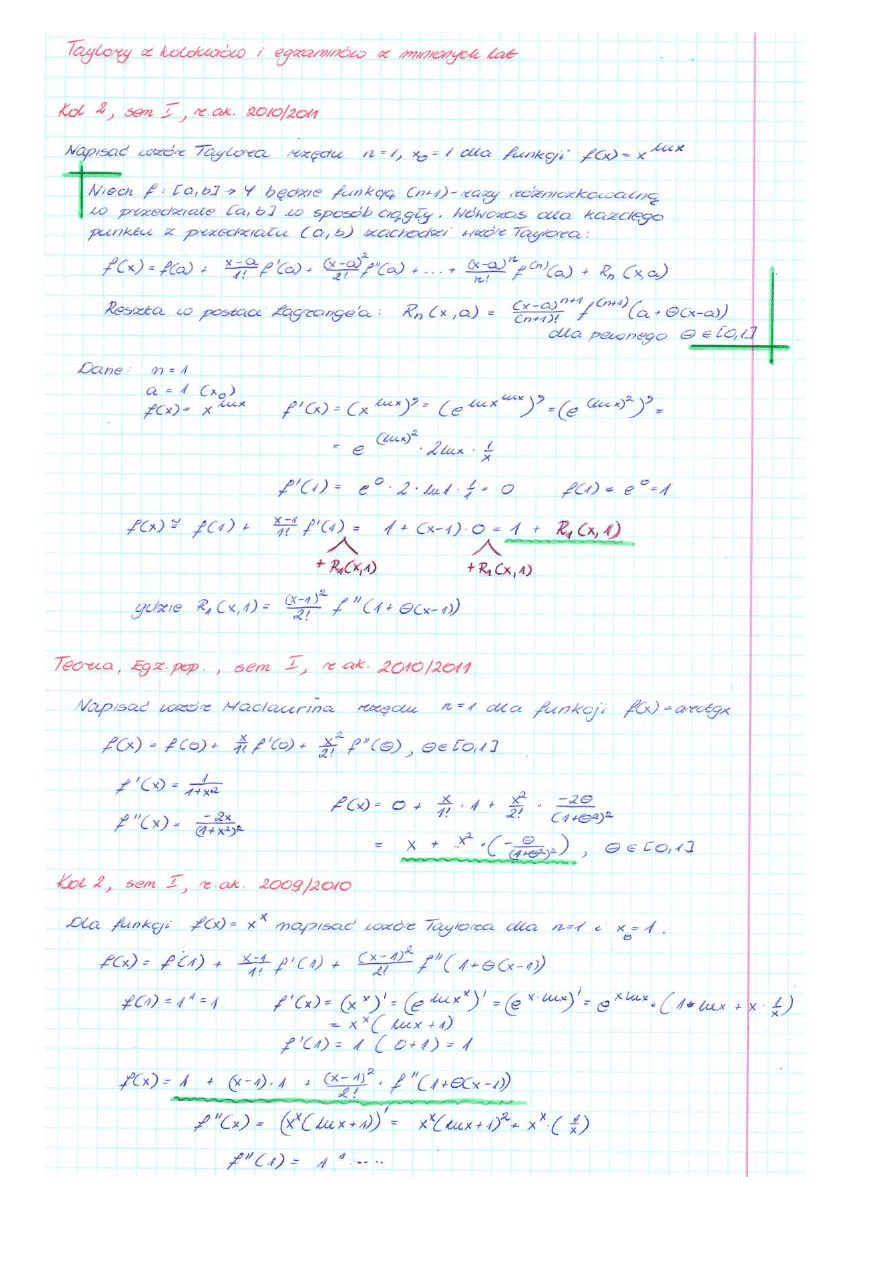 Taylory z kolokwiów i egzaminów z minionych lat
Kol 2, sem I, r.ak. 2010/2011
Napisać wzór Taylora rzędu n=1, x₀=1 dla funkcji f(x)=x^lnx
Niech f:[a,b]→Y będzie funkcją (n+1)-razy różniczkowalną
w przedziale [a,b] w sposób ciągły. Wówczas dla każdego
punktu z przedziału (a,b) zachodzi wzór Taylora:
f(x)=f(a)+ (x-a)/1! f'(a)+ (x-a)²/2! f''(a)+ ... + (x-a)ⁿ/n! f^(n)(a) + Rn(x,a)
Reszta w postaci Lagrange'a: Rn(x,a) = (x-a)^(n+1)/(n+1)! f^(n+1)(a+Θ(x-a))
dla pewnego Θ∈[0,1]
Dane: n=1
a=1 (x₀)
f(x)=x^lnx f'(x)=(x^lnx)'=(e^lnx^lnx)'=(e^(lnx)²)'=
= e^(lnx)² · 2lnx · 1/x
f'(1)= e⁰·2·ln1·1/1=0 f(1)=e⁰=1
f(x)≅ f(1)+ (x-1)/1! f'(1)= 1+(x-1)·0=1 + R₁(x,1)
+R₁(x,1) +R₁(x,1)
gdzie R₁(x,1)= (x-1)²/2! f''(1+Θ(x-1))
Teoria, Egz.pop., sem I, r.ak. 2010/2011
Napisać wzór Maclaurina rzędu n=1 dla funkcji f(x)=arctgx
f(x)=f(0)+ x/1! f'(0)+ x²/2! f''(Θ), Θ∈[0,1]
f'(x)= 1/(1+x²)
f(x)= 0 + x/1! · 1 + x²/2! · -2Θ/(1+Θ²)²
f''(x)= -2x/(1+x²)²
= x + x²·(-Θ/(1+Θ²)²), Θ∈[0,1]
Kol 2, sem I, r.ak. 2009/2010
Dla funkcji f(x)=x^x napisać wzór Taylora dla n=1 i x₀=1.
f(x)= f(1)+ (x-1)/1! f'(1)+ (x-1)²/2! f''(1+Θ(x-1))
f(1)=1¹=1 f'(x)=(x^x)'=(e^lnx^x)'=(e^x·lnx)'=e^xlnx·(1·lnx+x·1/x)
=x^x(lnx+1)
f'(1)=1(0+1)=1
f(x)=1 + (x-1)·1 + (x-1)²/2! · f''(1+Θ(x-1))
f''(x)= (x^x(lnx+1))'= x^x(lnx+1)²+x^x·(1/x)
f''(1)= 1¹.....